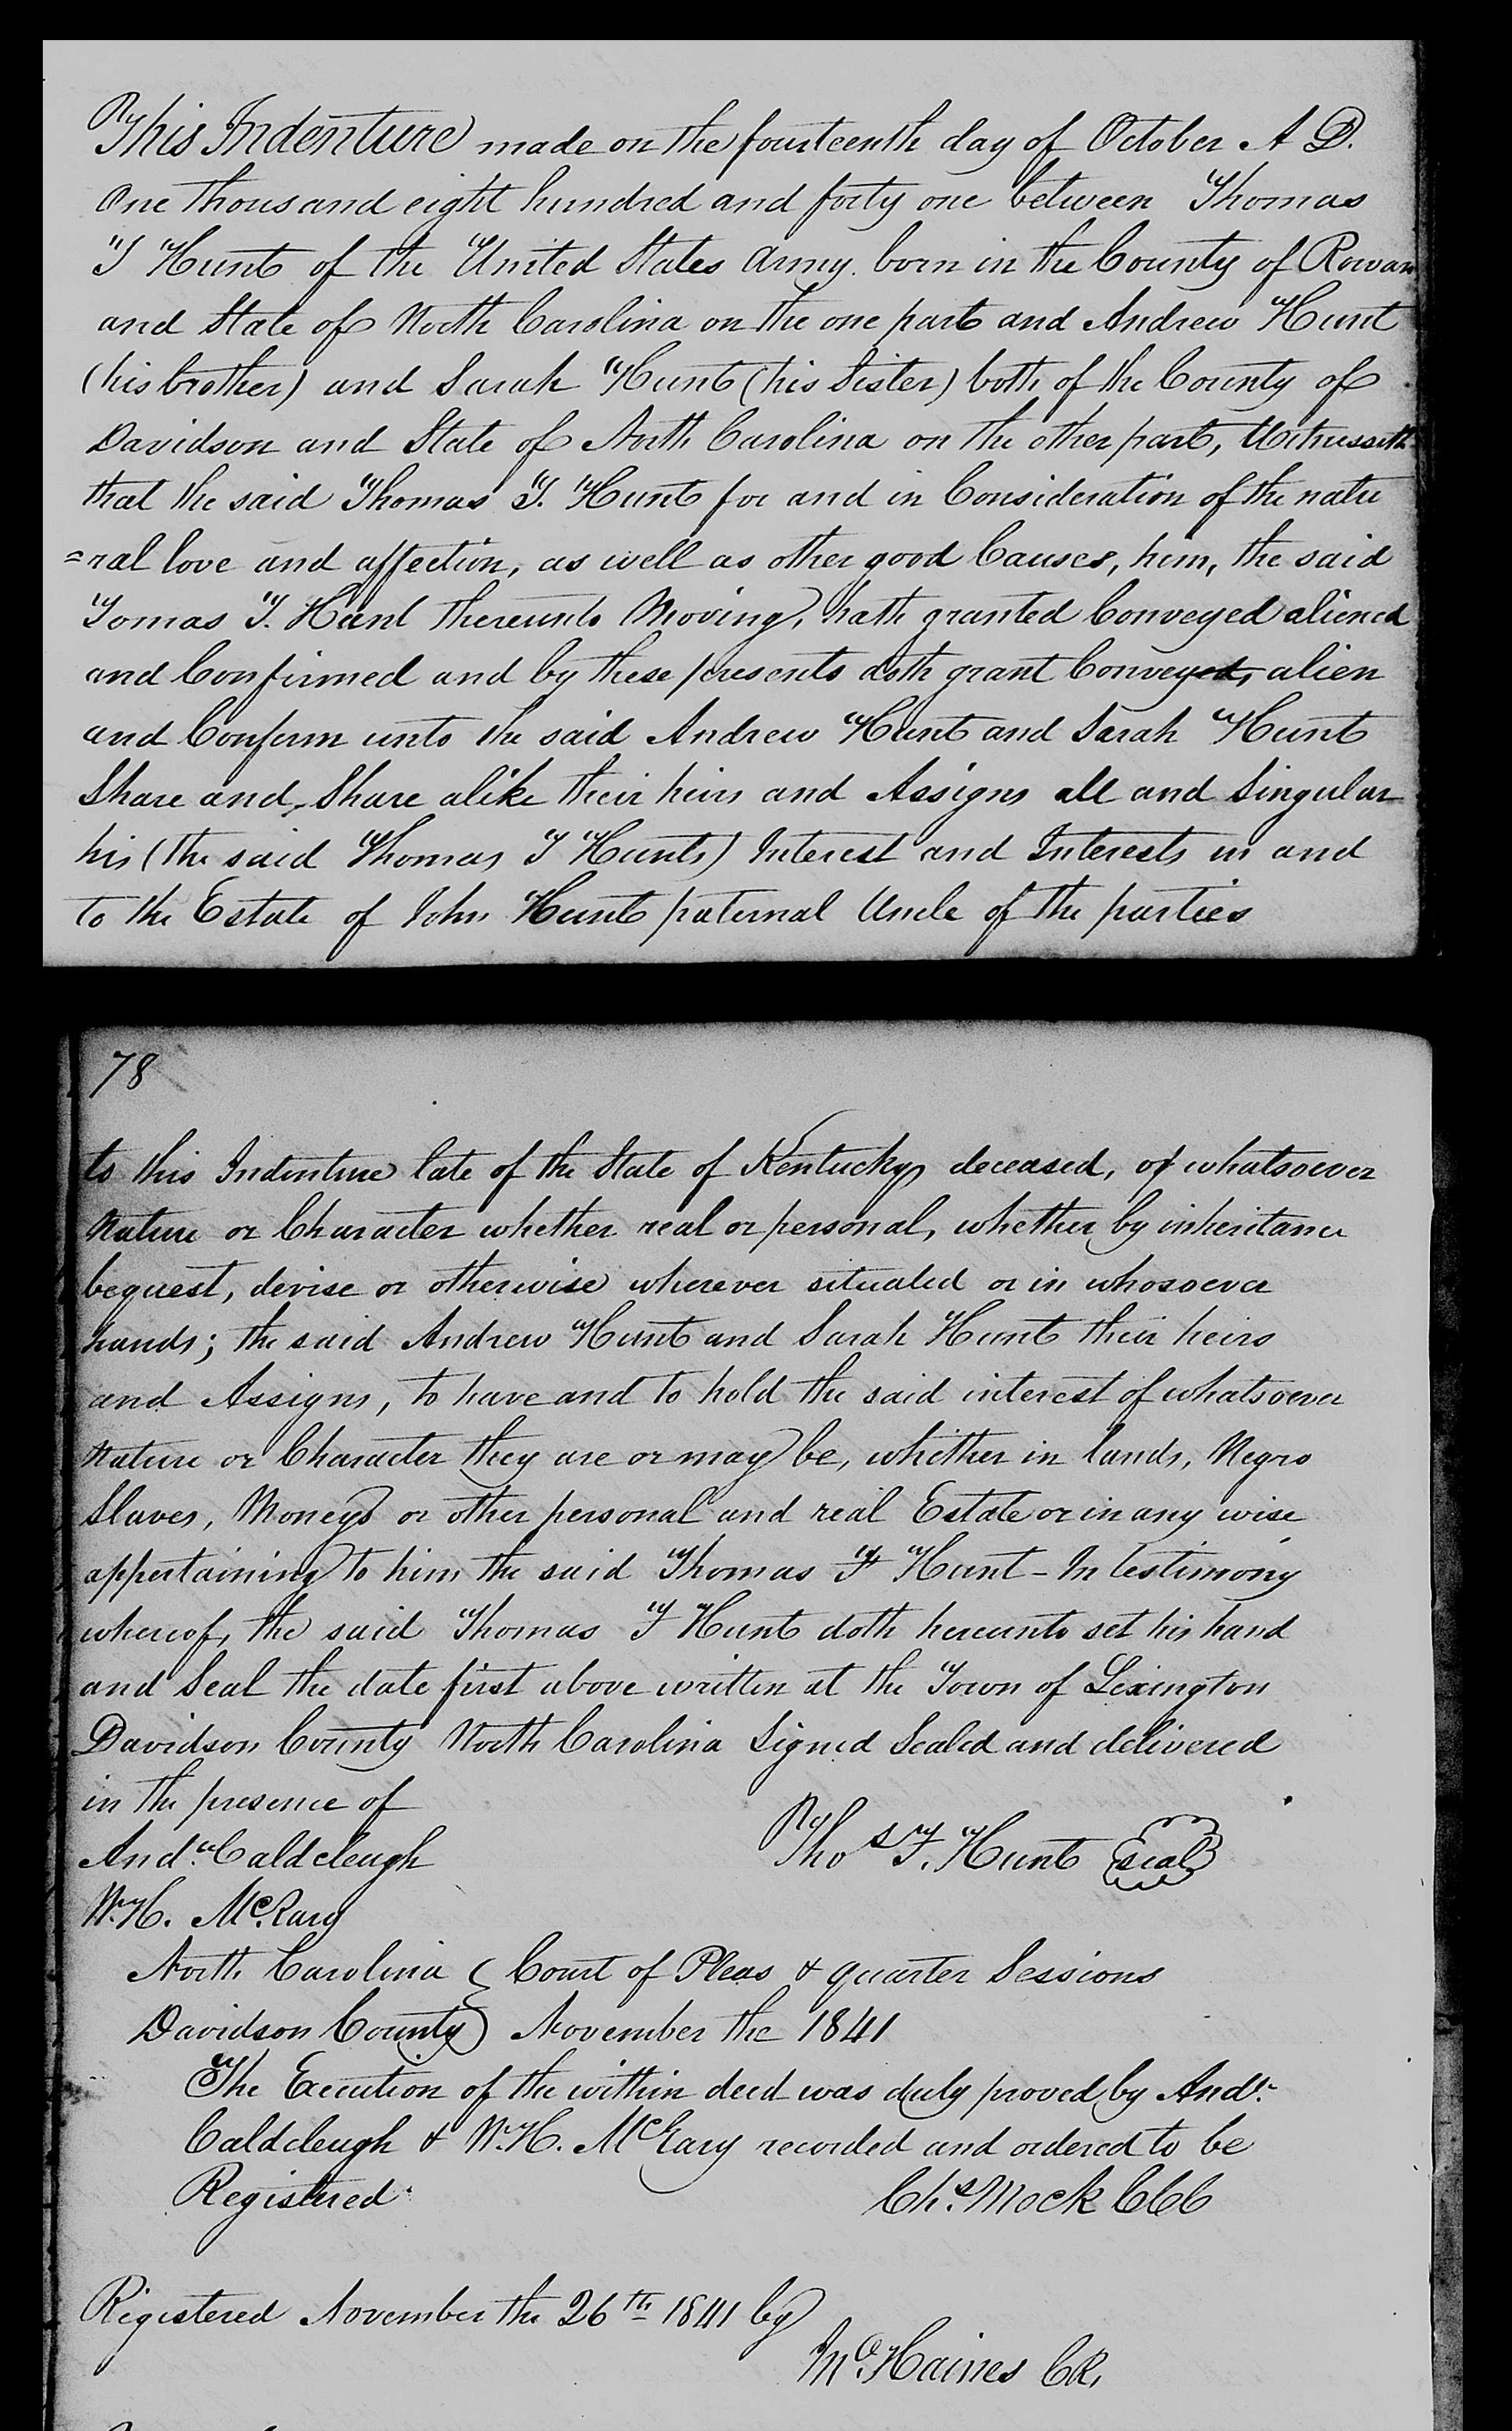 This Indenture made on the fourteenth day of October A D.
One thousand eight hundred and forty one between Thomas
T Hunt of the United States Army. born in the County of Rowan
and State of North Carolina on the one part and Andrew Hunt
(his brother) and Sarah Hunt (his Sister) both of the County of
Davidson and State of North Carolina on the other part, Witnesseth
that the said Thomas T. Hunt for and in Consideration of the natu
=ral love and affection, as well as other good Causes, him, the said
Tomas T. Hunt thereunto Moving, hath granted Conveyed aliened
and Confirmed and by these presents doth grant Conveyed, alien
and Confirm unto the said Andrew Hunt and Sarah Hunt
Share and, Share alike their heirs and Assigns all and Singular
his (the said Thomas T Hunts) Interest and Interests in and
to the Estate of John Hunt paternal Uncle of the parties
78
to this Indenture late of the State of Kentucky deceased, of whatsoever
Nature or Character whether real or personal, whether by inheritance
bequest, devise or otherwise wherever situated or in whosoever
hands; the said Andrew Hunt and Sarah Hunt their heirs
and Assigns, to have and to hold the said interest of whatsoever
Nature or Character they are or may be, whether in lands, Negro
Slaves, Moneys or other personal and real Estate or in any wise
appertaining to him the said Thomas F Hunt - In testimony
whereof, the said Thomas F Hunt doth hereunto set his hand
and Seal the date first above written at the Town of Lexington
Davidson County North Carolina Signed Sealed and delivered
in the presence of
Andw. Caldcleugh Thos F. Hunt seal
W. H. McRary
North Carolina Court of Pleas & quarter Sessions
Davidson County November the 1841
The Execution of the within deed was duly proved by Andr.
Caldcleugh & W. H. McRary recorded and ordered to be
Registered. Chs. Mock CCC
Registered November the 26th 1841 by
Mo. Haines CR,